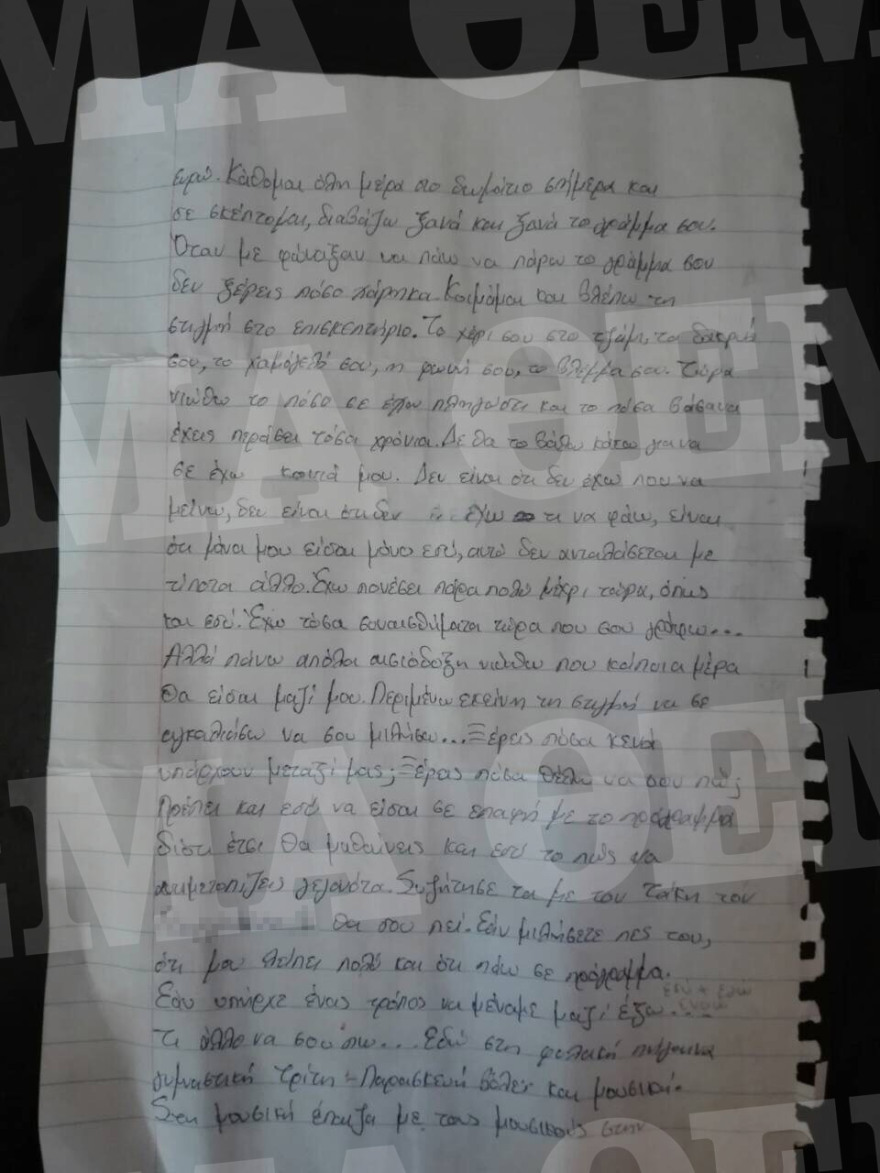 Κάθομαι όλη μέρα στο δωμάτιο σήμερα και
σε σκέπτομαι, διαβάζω ξανά και ξανά το γράμμα σου.
Όταν με φώναξαν να πάω να πάρω το γράμμα σου
δεν ξέρεις πόσο χάρηκα. Κοιμάμαι και βλέπω τη
στιγμή στο επισκεπτήριο. Το χέρι σου στο τζάμι, το δάκρυ
σου, το χαμόγελό σου, η φωνή σου, το βλέμμα σου. Τώρα
νιώθω το πόσο σε έχω πληγώσει και το πόσα βάσανα
έχεις περάσει τόσα χρόνια. Δε θα το βάλω κάτω για να
σε έχω κοντά μου. Δεν είναι ότι δεν έχω που να
μείνω, δεν είναι ότι δεν έχω τι να φάω, είναι
ότι μάνα μου είσαι μόνο εσύ, αυτό δεν ανταλάσεται με
τίποτα άλλο. Έχω πονέσει πάρα πολύ μέχρι τώρα, όπως
και εσύ. Έχω τόσα συναισθήματα τώρα που σου γράφω...
Αλλά πάνω απόλα αισιόδοξη νιώθω που κάποια μέρα
θα είσαι μαζί μου. Περιμένω εκείνη τη στιγμή να σε
αγκαλιάσω να σου μιλήσω... Ξέρεις πόσα κενά
υπάρχουν μεταξύ μας; Ξέρεις πόσα θέλω να σου πω;
Πρέπει και εσύ να είσαι σε επαφή με το πρόγραμμα
διότι έτσι θα μαθαίνεις και εσύ το πώς να
αντιμετωπίζεις γεγονότα. Συζήτησε τα με τον Τάκη τον
θα σου πει. Εάν μιλήσετε πες του,
ότι μου λείπει πολύ και ότι πάω σε πρόγραμμα.
Εάν υπήρχε ένας τρόπος να μέναμε μαζί έξω...
Τι άλλο να σου πω... Εδώ στη φυλακή πηγαίνω
γυμναστική Τρίτη - Παρασκευή βόλεϊ και μουσική.
Στη μουσική έπαιξα με τους μουσικούς στην
ΘΕΜΑ